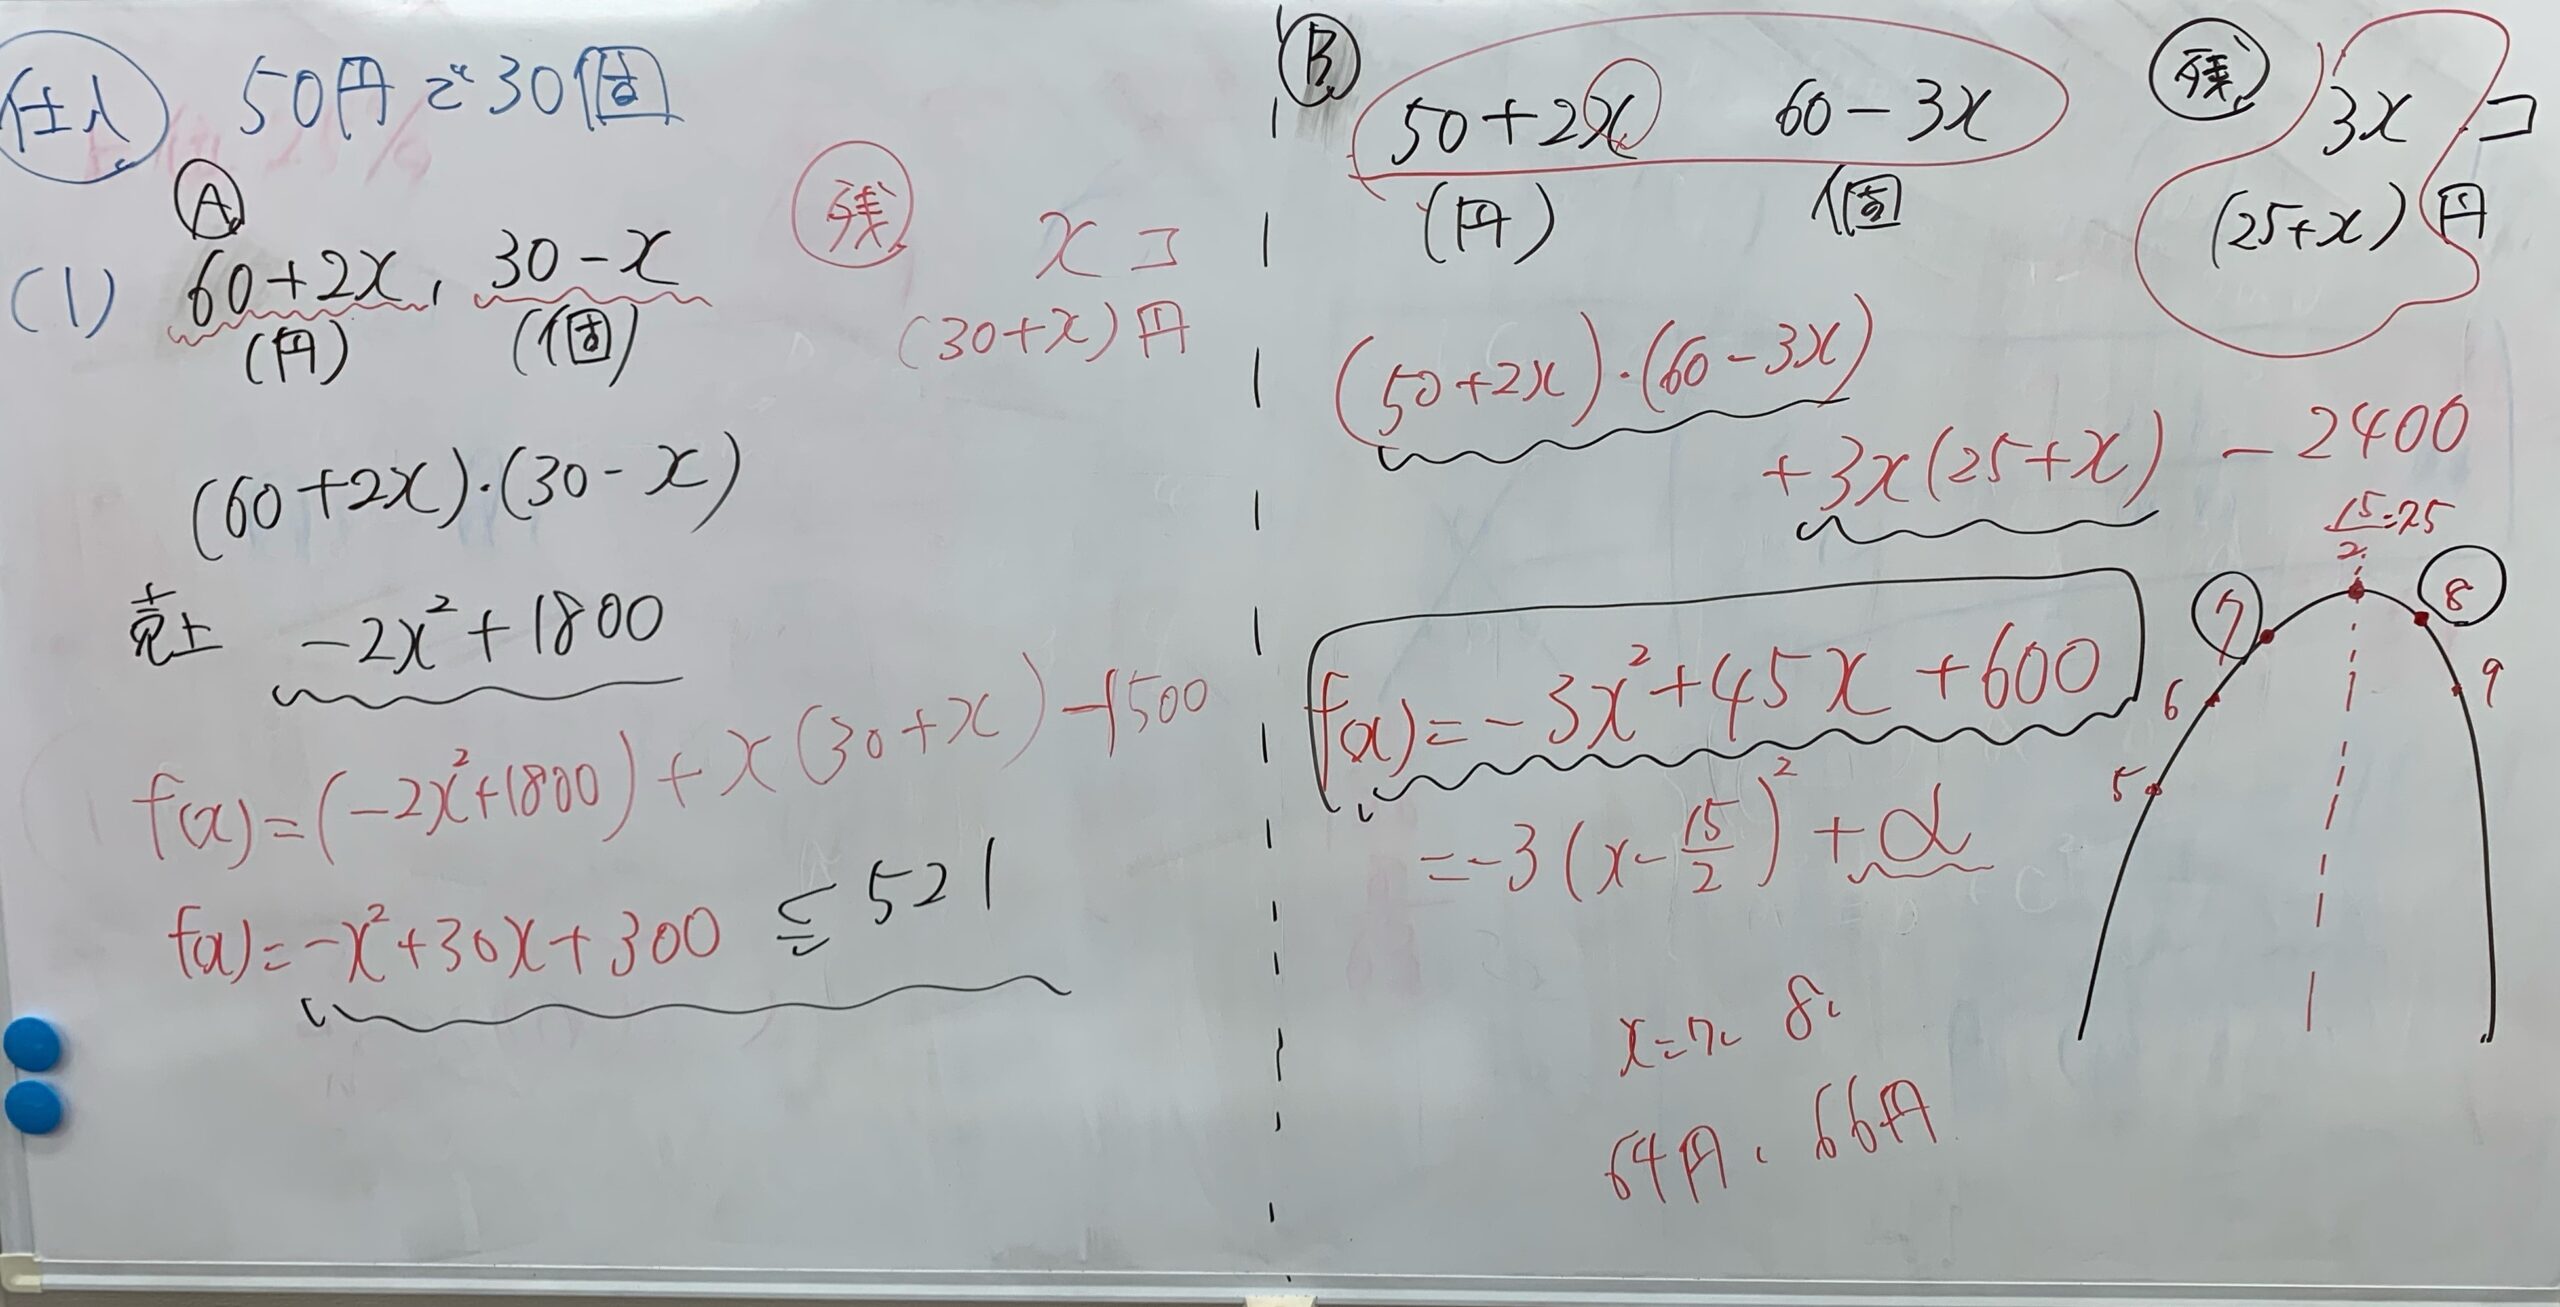 仕入 50円で30個
A
(1) 60+2x, 30-x
(円) (個)
残 xコ
(30+x)円
(60+2x)·(30-x)
売上 -2x²+1800
f(x)=(-2x²+1800)+x(30+x)-1500
f(x)=-x²+30x+300 ≦ 521
B
50+2x 60-3x
(円) 個
残 3xコ
(25+x)円
(50+2x)·(60-3x)
+3x(25+x) -2400
f(x)=-3x²+45x+600
=-3(x-15/2)²+α
x=7, 8,
64円, 66円
15/2=7.5
7 8
6 9
5